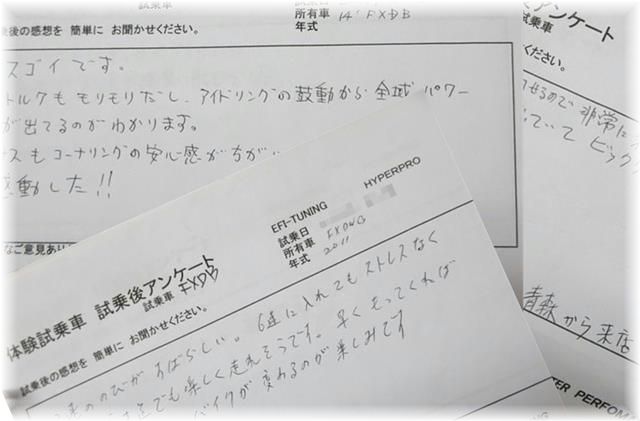 試乗車
所有車 14' FXDB
年式
後の感想を 簡単に お聞かせください。
スゴイです。
トルクもモリモリだし、アイドリングの鼓動から全域パワー
が出てるのがわかります。
スもコーナリングの安心感がちがい
感動した!!
なご意見あり
乗後アンケート
ください。
せるので 非常に
ていて ビック
青森から来店
体験試乗車 試乗後アンケート
試乗車 FXDB
EFI-TUNING HYPERPRO
試乗日
所有車 FXDWG
年式 2011
試乗後の感想を 簡単に お聞かせください。
ののびがすばらしい。6速に入れてもストレスなく
でも楽しく走れそうです。早くもってくれば
バイクが変わるのが楽しみです
ER PERFOMA